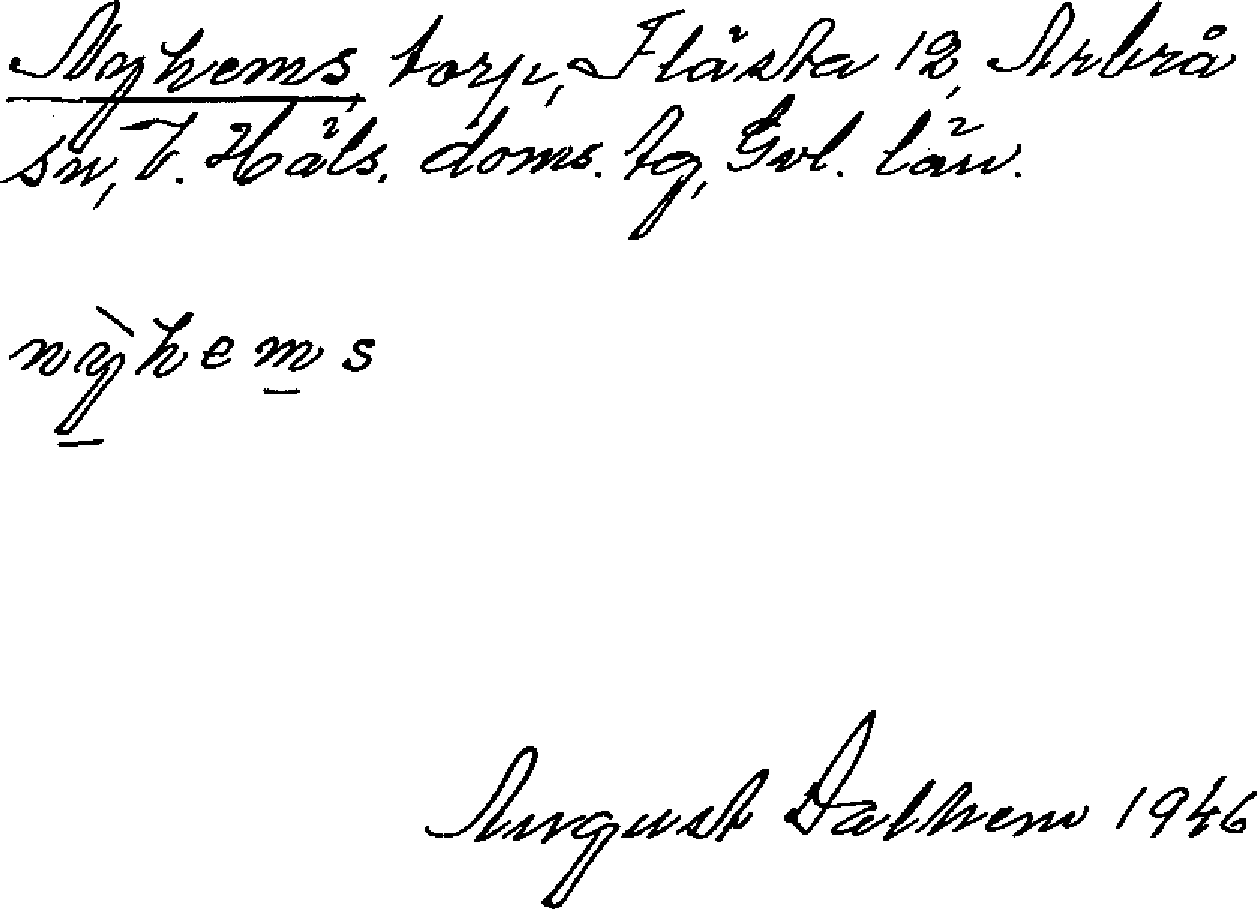 Nyhems, torp, Flästa 12, Arbrå
sn, V. Häls. doms. tg, Gvl. län.
nỳhems
August Dalhem 1946